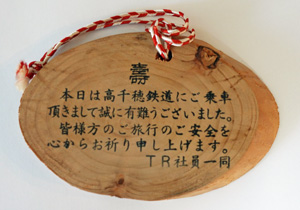 壽
本日は高千穂鉄道にご乗車
頂きまして誠に有難うございました。
皆様方のご旅行のご安全を
心からお祈り申し上げます。
TR社員一同